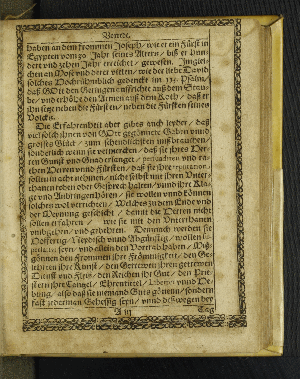 Vorrede.
haben an dem frommen Joseph / wie er ein Fürst in
Egypten vom 30 Jahr seines Alters / biß er hun-
dert und zehen Jahr erreichet / gewesen. Imglei-
chen an Mose und derer vielen / wie der liebe David
solches Hochrühmblich gedencket im 113. Psalm /
daß GOtt den Geringen auffrichte auß dem Stau-
be / und erhöhet den Armen auß dem Koth / daß er
ihn setze neben die Fürsten / neben die Fürsten seines
Volcks.
Die Erfahrenheit aber gibts auch leyder / daß
viel solch ihnen von GOtt gegönnete Gaben unnd
grosses Glück / zum schendlichsten mißbrauchen /
sonderlich wenn sie vermercken / daß sie ihres Her-
ren Gunst und Gnad erlanget /
then Herren unnd Fürsten / daß sie ihre
sollen in acht nehmen / nicht selbst mit ihren Unter-
thanen reden oder Gesprech halten / unnd ihre Kla-
ge und Anbringen hören / sie wollen und können
solches wol verrichten / Welches zu dem Ende und
der Meynung geschicht / damit die Herren nicht
sollen erfahren / wie sie mit den Unterthanen
umbgehen / und gebehren. Demnach werden sie
Hoffertig / Neydisch unnd Abgünstig / wollen
seyn und allein den Vortheil haben / Miß-
gönnen den Frommen ihre Frömmigkeit / den Ge-
lehrten ihre Kunst / den Getrewen ihren getrewen
Dienst und Fleiß / den Reichen ihr Gut / den Prie-
stern ihre Cantzel / Ehrentittel / unnd He-
bung / also daß sie niemand Guts gönnen / sondern
fast jederman Gehessig seyn / unnd deßwegen bey
A iij
Tag